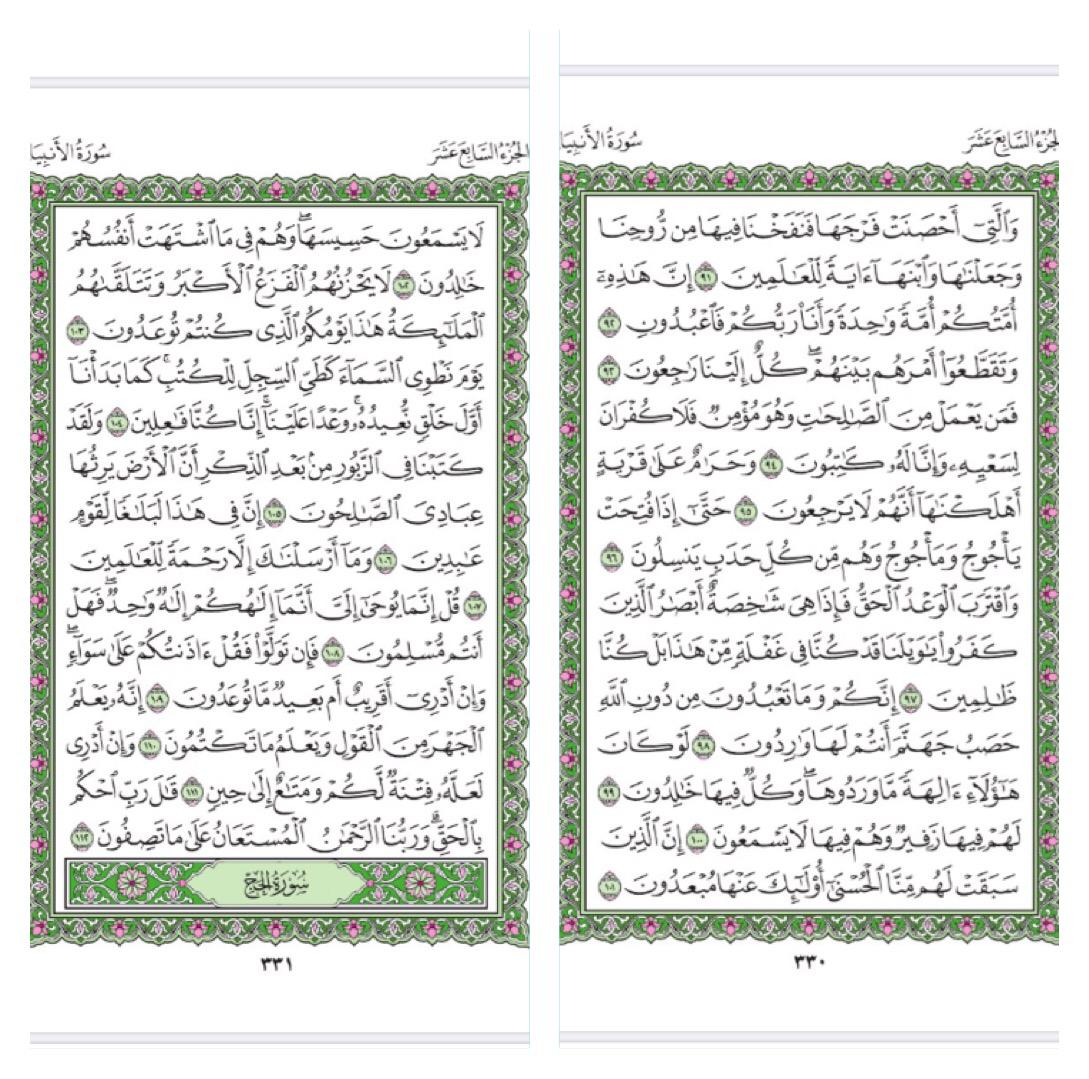 الجزء السابع عشر
سورة الأنبيا
وَٱلَّتِىٓ أَحْصَنَتْ فَرْجَهَا فَنَفَخْنَا فِيهَا مِن رُّوحِنَا
وَجَعَلْنَٰهَا وَٱبْنَهَآ ءَايَةً لِّلْعَٰلَمِينَ ٩١ إِنَّ هَٰذِهِۦٓ
أُمَّتُكُمْ أُمَّةً وَٰحِدَةً وَأَنَا۠ رَبُّكُمْ فَٱعْبُدُونِ ٩٢
وَتَقَطَّعُوٓا۟ أَمْرَهُم بَيْنَهُمْ ۖ كُلٌّ إِلَيْنَا رَٰجِعُونَ ٩٣
فَمَن يَعْمَلْ مِنَ ٱلصَّٰلِحَٰتِ وَهُوَ مُؤْمِنٌ فَلَا كُفْرَانَ
لِسَعْيِهِۦ وَإِنَّا لَهُۥ كَٰتِبُونَ ٩٤ وَحَرَٰمٌ عَلَىٰ قَرْيَةٍ
أَهْلَكْنَٰهَآ أَنَّهُمْ لَا يَرْجِعُونَ ٩٥ حَتَّىٰٓ إِذَا فُتِحَتْ
يَأْجُوجُ وَمَأْجُوجُ وَهُم مِّن كُلِّ حَدَبٍ يَنسِلُونَ ٩٦
وَٱقْتَرَبَ ٱلْوَعْدُ ٱلْحَقُّ فَإِذَا هِىَ شَٰخِصَةٌ أَبْصَٰرُ ٱلَّذِينَ
كَفَرُوا۟ يَٰوَيْلَنَا قَدْ كُنَّا فِى غَفْلَةٍ مِّنْ هَٰذَا بَلْ كُنَّا
ظَٰلِمِينَ ٩٧ إِنَّكُمْ وَمَا تَعْبُدُونَ مِن دُونِ ٱللَّهِ
حَصَبُ جَهَنَّمَ أَنتُمْ لَهَا وَٰرِدُونَ ٩٨ لَوْ كَانَ
هَٰٓؤُلَآءِ ءَالِهَةً مَّا وَرَدُوهَا ۖ وَكُلٌّ فِيهَا خَٰلِدُونَ ٩٩
لَهُمْ فِيهَا زَفِيرٌ وَهُمْ فِيهَا لَا يَسْمَعُونَ ١٠٠ إِنَّ ٱلَّذِينَ
سَبَقَتْ لَهُم مِّنَّا ٱلْحُسْنَىٰٓ أُو۟لَٰٓئِكَ عَنْهَا مُبْعَدُونَ ١٠١
٣٣٠
الجزء السابع عشر
سورة الأنبيا
لَا يَسْمَعُونَ حَسِيسَهَا ۖ وَهُمْ فِى مَا ٱشْتَهَتْ أَنفُسُهُمْ
خَٰلِدُونَ ١٠٢ لَا يَحْزُنُهُمُ ٱلْفَزَعُ ٱلْأَكْبَرُ وَتَتَلَقَّىٰهُمُ
ٱلْمَلَٰٓئِكَةُ هَٰذَا يَوْمُكُمُ ٱلَّذِى كُنتُمْ تُوعَدُونَ ١٠٣
يَوْمَ نَطْوِى ٱلسَّمَآءَ كَطَىِّ ٱلسِّجِلِّ لِلْكُتُبِ ۚ كَمَا بَدَأْنَآ
أَوَّلَ خَلْقٍ نُّعِيدُهُۥ ۚ وَعْدًا عَلَيْنَآ ۚ إِنَّا كُنَّا فَٰعِلِينَ ١٠٤ وَلَقَدْ
كَتَبْنَا فِى ٱلزَّبُورِ مِنۢ بَعْدِ ٱلذِّكْرِ أَنَّ ٱلْأَرْضَ يَرِثُهَا
عِبَادِىَ ٱلصَّٰلِحُونَ ١٠٥ إِنَّ فِى هَٰذَا لَبَلَٰغًا لِّقَوْمٍ
عَٰبِدِينَ ١٠٦ وَمَآ أَرْسَلْنَٰكَ إِلَّا رَحْمَةً لِّلْعَٰلَمِينَ
١٠٧ قُلْ إِنَّمَا يُوحَىٰٓ إِلَىَّ أَنَّمَآ إِلَٰهُكُمْ إِلَٰهٌ وَٰحِدٌ ۖ فَهَلْ
أَنتُم مُّسْلِمُونَ ١٠٨ فَإِن تَوَلَّوْا۟ فَقُلْ ءَاذَنتُكُمْ عَلَىٰ سَوَآءٍ ۖ
وَإِنْ أَدْرِىٓ أَقَرِيبٌ أَم بَعِيدٌ مَّا تُوعَدُونَ ١٠٩ إِنَّهُۥ يَعْلَمُ
ٱلْجَهْرَ مِنَ ٱلْقَوْلِ وَيَعْلَمُ مَا تَكْتُمُونَ ١١٠ وَإِنْ أَدْرِى
لَعَلَّهُۥ فِتْنَةٌ لَّكُمْ وَمَتَٰعٌ إِلَىٰ حِينٍ ١١١ قَٰلَ رَبِّ ٱحْكُم
بِٱلْحَقِّ ۗ وَرَبُّنَا ٱلرَّحْمَٰنُ ٱلْمُسْتَعَانُ عَلَىٰ مَا تَصِفُونَ ١١٢
سُورَةُ الحَجّ
٣٣١